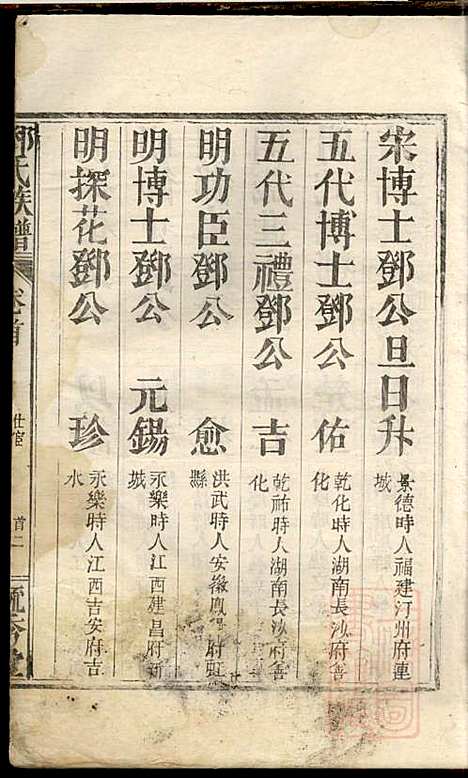 宋博士鄧公旦日升 景德時人福建汀州府連城
五代博士鄧公 佑 乾化時人湖南長沙府善化
五代三禮鄧公 吉 乾祐時人湖南長沙府善化
明功臣鄧公 愈 洪武時人安徽鳳陽府虹縣
明博士鄧公 元錫 永樂時人江西建昌府新城
明探花鄧公 珍 永樂時人江西吉安府吉水
鄧氏族譜 卷首 仕宦 首二